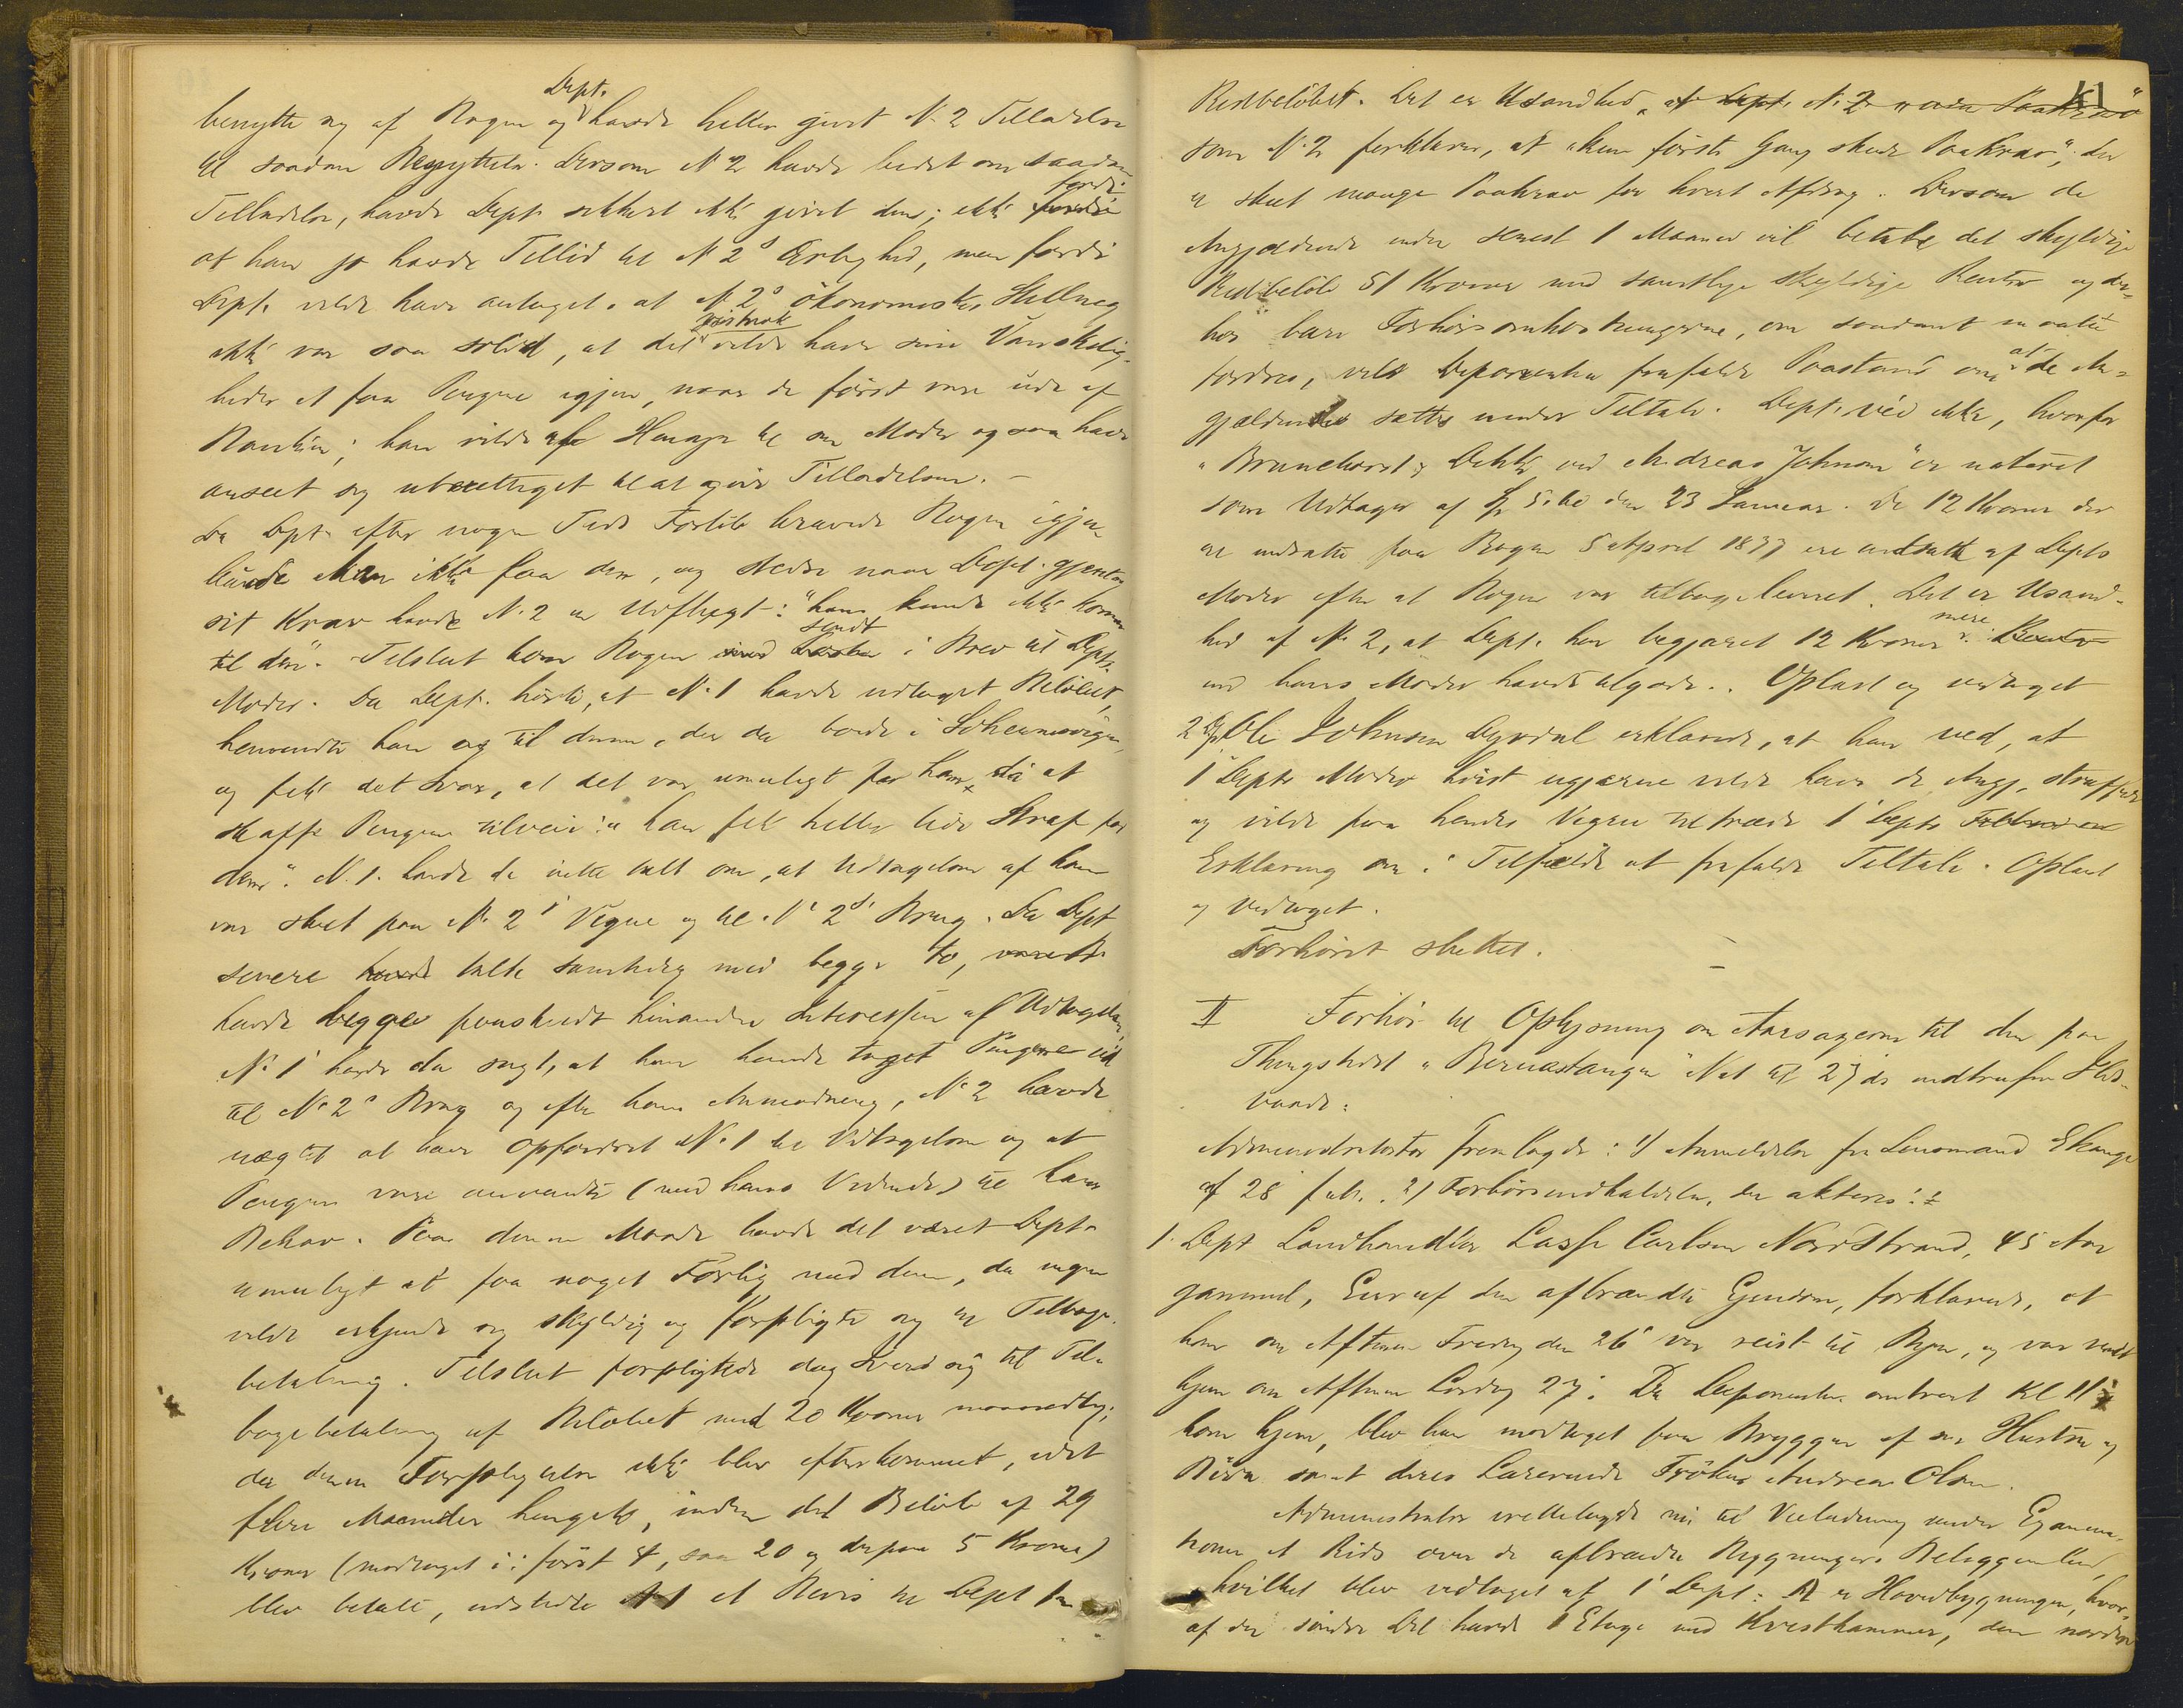 Dept.
benytte sig af Bogen og havde heller givet N. 2 Tilladelse
til saadan Benyttelse. Dersom N. 2 havde bedet om saadan
fordi
Tilladelse, havde Dept. sikkert ikke givet den; ikke fordi
at han jo havde Tillid til N. 2s Ærlighed, men fordi
Dept. vilde have antaget, at N. 2s økonomiske Stilling
vistnok
ikke var saa solid, at det vilde have sine Vanskelig-
heder at faa Pengene igjen, naar de først vare ude af
Banken; han vilde af Hensyn til sin Moder ogsaa have
anseet sig uberettiget til at give Tilladelsen. –
Da Dept. efter nogen Tids Forløb krævede Bogen igjen
kunde Man ikke faa den, og stedse naar Dept. gjentog
sit Krav havde N. 2 en Udflugt: "han kunde ikke komme
sendt
til den". Tilslut kom Bogen i Brev til Depts.
Moder. Da Dept. hørte, at N. 1 havde udtaget Beløbet,
henvendte han sig til denne, der da boede i
og fik det Svar, at det var umuligt for ham da at
skaffe Pengene tilveie: "han fik heller lide Straf for
dem". N. 1. havde da intet talt om, at Udtagelsen af ham
var skeet paa N. 2s Vegne og til N. 2s Brug. Da Dept
senere havde talt samtidig med begge to,
havde begge paaskudt hinandens Interesse af Udtagelsen,
N. 1 havde da sagt, at han havde taget Pengene ud
til N. 2s Brug og efter hans Anmodning, N. 2 havde
nægtet at have opfordret N. 1 til Udtagelsen og at
Pengene vare anvendte (med hans Vidende) til hans
Behov. Paa denne Maade havde det været Dept.
umuligt at faa noget Forlig med dem, da ingen
vilde erkjende sig skyldig og forpligte sig til Tilbage-
betaling. Tilslut forpligtede dog sig til Til-
bagebetaling af Beløbet med 20 Kroner maanedlig;
da denne Forpligtelse ikke blev efterkommet, idet
flere Maaneder hengik, inden det Beløb af 29
Kroner (modtaget i: først 4, saa 20 og derpaa 5 Kroner)
blev betalt, udstedte N 1 et Bevis til Dept
41
Restbeløbet. Det er Usandhed, at Dept. N. 2
som N. 2 forklarer, at "kun første Gang skede Paakrav"; der
er skeet mange Paakrav for hvert Afdrag. Dersom de
Angjældende inden senest 1 Maaned vil betale det skyldige
Restbeløb 51 Kroner med samtlige skyldige Renter og der-
hos bære Forhørsomkostningerne, om saadant maatte
at
fordres, vil Deponenten frafalde Paastand om de An-
gjældendes sættes under Tiltale. Dept. véd ikke, hvorfor
"Brunchorst & Dekke ved Andreas Johnsen" er noteret
som Udtager af Kr. 5.40 den 23 Januar. De 12 Kroner der
er indsatte paa Bogen 5 April 1897 ere indsatte af Depts
Moder efter at Bogen var tilbageleveret. Det er Usand-
mere
hed af N. 2, at Dept. har begjæret 12 Kroner
end hans Moder havde tilgode. Oplæst og vedtaget
2 Dept. Ole Johnsen erklærede, at han ved, at
1 Depts Moder høist ugjerne vilde have de Angj. straffede
og vilde paa hendes Vegne tiltræde 1 Depts
Erklæring om i Tilfælde at frafalde Tiltale. Oplæst
og vedtaget.
Forhøret sluttet. –
II Forhør til Oplysning om Aarsagerne til den paa
Thingstedet "Bernestangen" Nat til 27 ds indtrufne Ilds-
vaade:
Administrator fremlagde: 1) Anmeldelse fra Lensmand
af 28 febr. 2) Forhørsindkaldelse, der akteres:
1. Dept Landhandler Lasse Carlsen Nordstrand, 45 Aar
gammel, Eier af den afbrændte Eiendom, forklarede, at
han om Aftenen Fredag den 26 var reist til Byen, og var vendt
hjem om Aftenen Lørdag 27. Da Deponenten omtrent Kl 11
kom hjem, blev han modtaget paa Bryggen af sin Hustru og
Børn samt deres Lærerinde Frøken Andrea Olsen.
Administrator irettelagde nu til Veiledning under Examina-
tionen et Rids over de afbrændte Bygningers Beliggenhed,
hvilket blev vedtaget af 1 Dept: A er Hovedbygningen, hvor-
af den søndre Del havde 1 Etage med Kvistkammer, den nordre